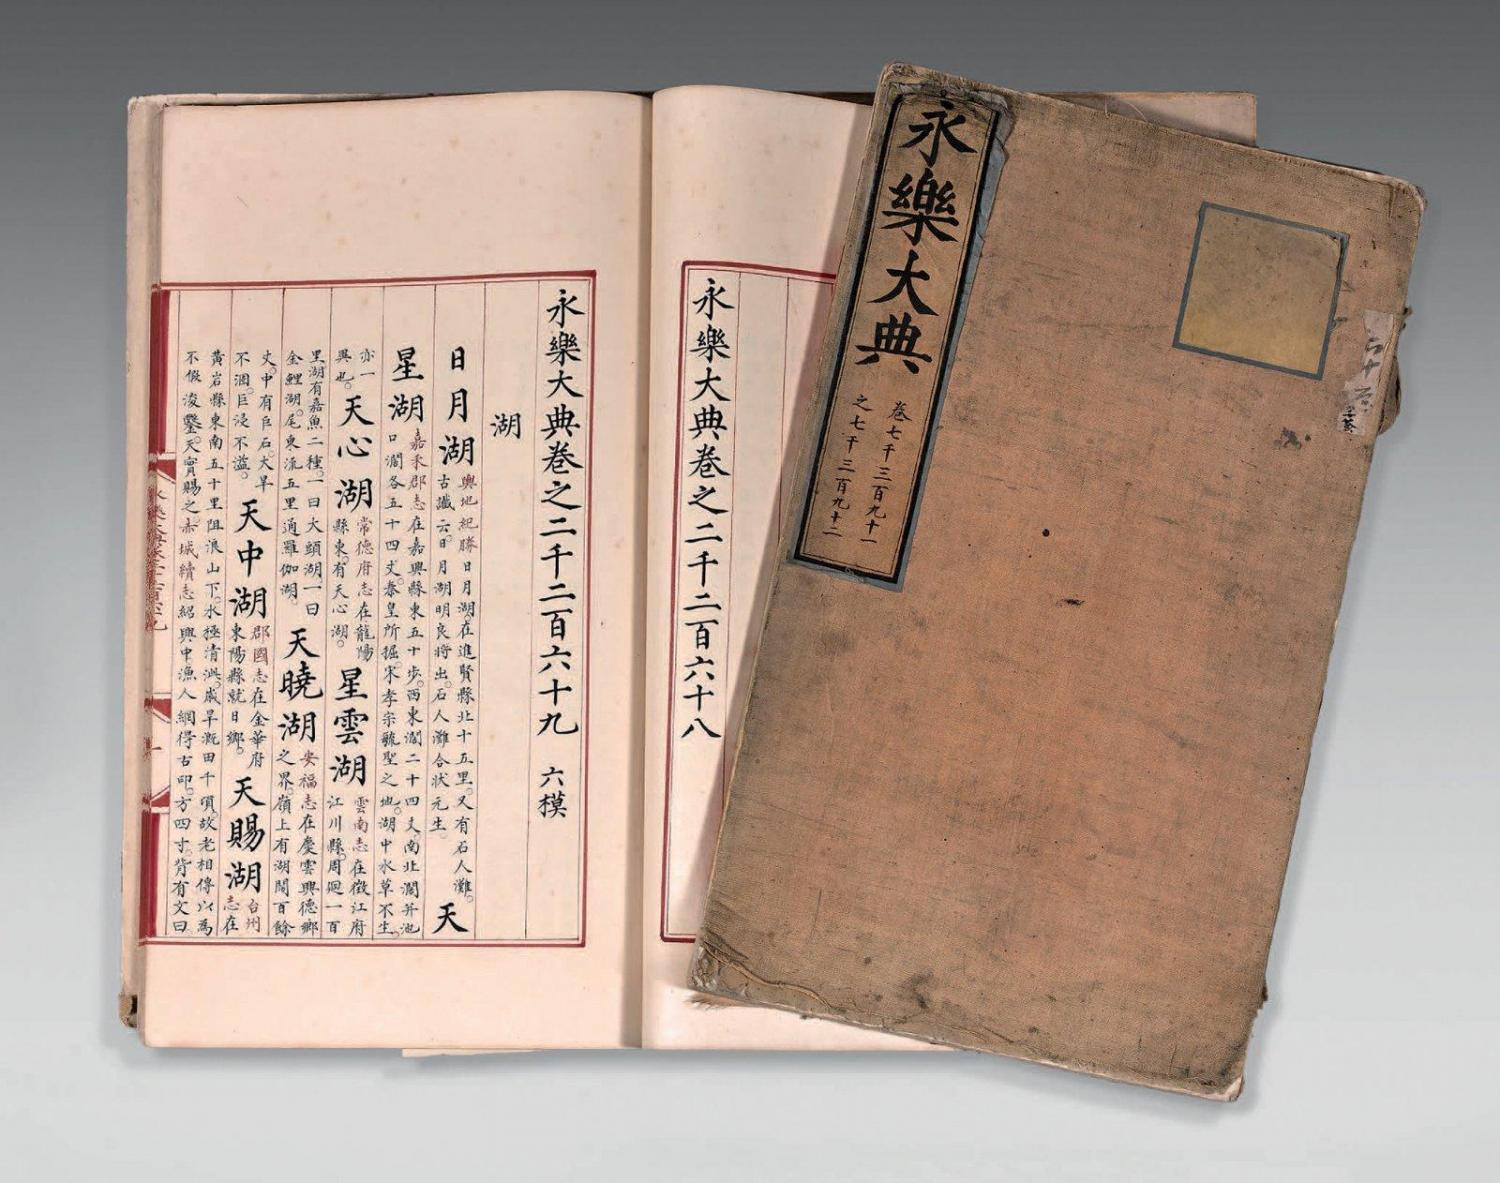 永樂大典
卷七千三百九十一
之七千三百九十二
永樂大典卷之二千二百六十八
永樂大典卷之二千二百六十九 六模
湖
日月湖 輿地紀勝日月湖在進賢縣北十五里又有石人灘
古讖云日月湖明良將出石人灘合狀元生 天
星湖 嘉禾郡志在嘉興縣東五十步西東濶二十四丈南北濶并池
口濶各五十四丈秦皇所掘宋孝宗毓聖之地湖中水草不生
亦一
異也 天心湖 常德府志在龍陽
縣東有天心湖 星雲湖 雲南志在徵江府
江川縣周廻一百
里湖有嘉魚二種一曰大頭湖一曰
金鯉湖尾東流五里通羅伽湖 天曉湖 安福志在慶雲興德鄉
之界嶺上有湖闊百餘
丈中有巨石大旱
不涸巨浸不溢 天中湖 郡國志在金華府
東陽縣就日鄉 天賜湖 台州
志在
黃岩縣東南五十里阻浪山下水極清泚歲旱溉田千頃故老相傳以為
不假浚鑿天實賜之赤城續志紹興中漁人網得古印方四寸背有文曰